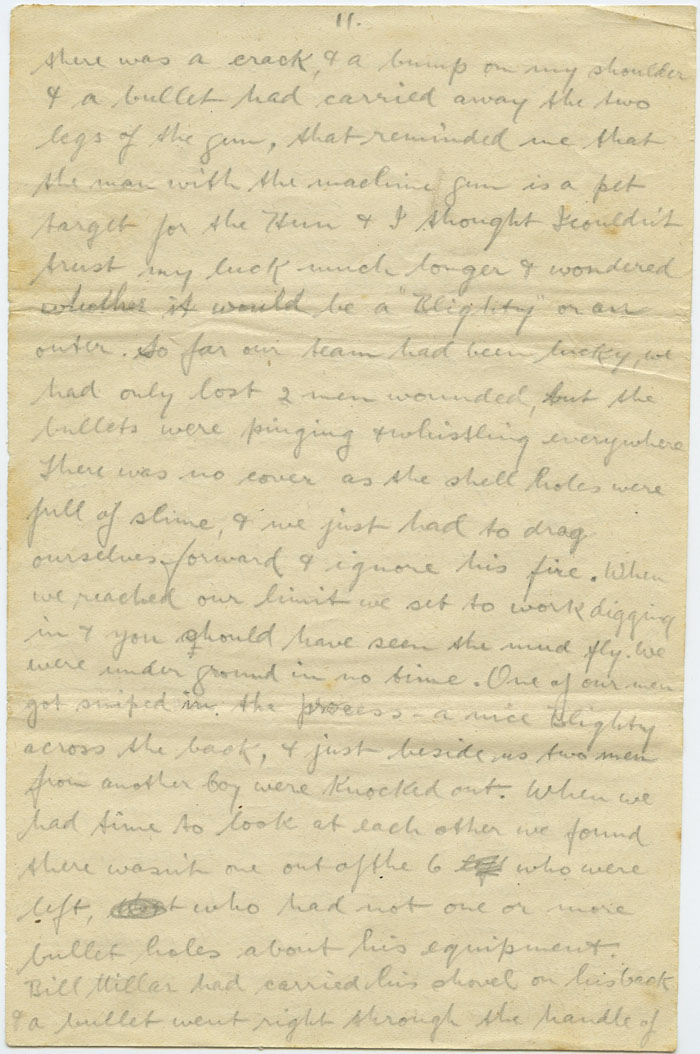 11.
there was a crack, & a bump on my shoulder
& a bullet had carried away the two
legs of the gun, that reminded me that
the man with the machine gun is a pet
target for the Hun & I thought I couldn't
trust my luck much longer & wondered
whether it would be a "Blighty" or an
outer. So far our team had been lucky, we
had only lost 2 men wounded, but the
bullets were pinging & whistling everywhere
There was no cover as the shell holes were
full of slime, & we just had to drag
ourselves forward & ignore his fire. When
we reached our limit we set to work digging
in & you should have seen the mud fly. We
were under ground in no time. One of our men
got sniped in the process - a nice Blighty
across the back, & just beside us two men
from another Coy were knocked out. When we
had time to look at each other we found
there wasn't one out of the 6 who were
left, who had not one or more
bullet holes about his equipment.
Bill Millar had carried his shovel on his back
& a bullet went right through the handle of